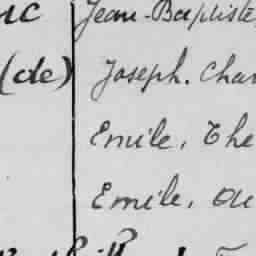 nc Jean-Baptiste,
(de) Joseph. Char
Emile, The
Emile, Au